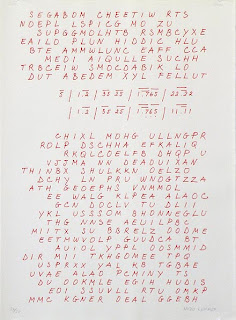 SEGABOM CHEETIW RTS
NOEPL LSPICG MO ZU
SUPGGMOLHTB RSMBCYXE
EAILD PLUN HIDDIC HLU
BTE AMMWLUNC EAFF CCA
MEDI AIQULLE SUCHH
TRBCEIW SMOCDABIK LO
DUT ABEDEM XYL FELLUT
CHIXL MDHG ULLNGPR
ROLP DSCHHA EFKALIQ
RKQLCOELFB DHQP U
VJJMA NN DEADUIXAN
THINBX SHULKKN OELZO
DCHY LN PRU WNOGTZZA
ATH GEOEPHS VNMMOL
EE WALG KLPEA ALAOC
GCN DOCLV TU DLII
YKL USSSOM BHONNEGLU
THG NNSE AEUILPBC
MIITX SU BBRELZ OODME
EETMWVOLP GUUDCA BT
AUIOL YPPL OOSMMID
DIR MII TKHGOMEE TPQ
USPRXX YAL KB TGBAE
UVAE ALAO PCHINY TS
DU OOKMLE EGIH HUDIS
EOI SSUVLL RTU OMA
MMC KGNER DEAL GGEBH